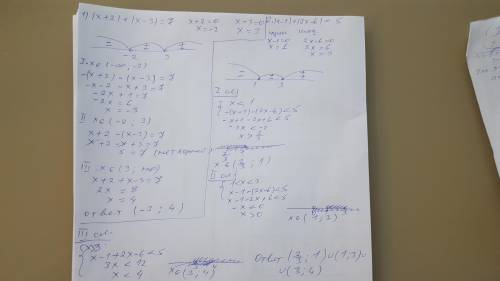 1) |x+2| + |x-3| = 7
x+2=0
x=-2
x-3=0
x=3
-2 3
I. x∈(-∞, -2)
-(x+2)-(x-3)=7
-x-2-x+3=7
-2x+1=7
-2x=6
x=-3
II x∈(-2; 3)
x+2-(x-3)=7
x+2-x+3=7
5=7 (нет корней)
III x∈(3; +∞)
x+2+x-3=7
2x=8
x=4
ответ (-3; 4)
|x-1|+|2x-6|<5
x-1=0
x=1
2x-6=0
2x=6
x=3
1 3
I сл)
x<1
-(x-1)-(2x-6)<5
-x+1-2x+6<5
-3x<-2
x>2/3
x∈(2/3; 1)
II сл)
1<x<3
x-1-(2x-6)<5
x-1-2x+6<5
-x<0
x>0
x∈(1; 3)
III сл.
x-1+2x-6<5
3x<12
x<4
x∈(3; 4)
Ответ (2/3; 1)∪(1; 3)∪
∪(3; 4)